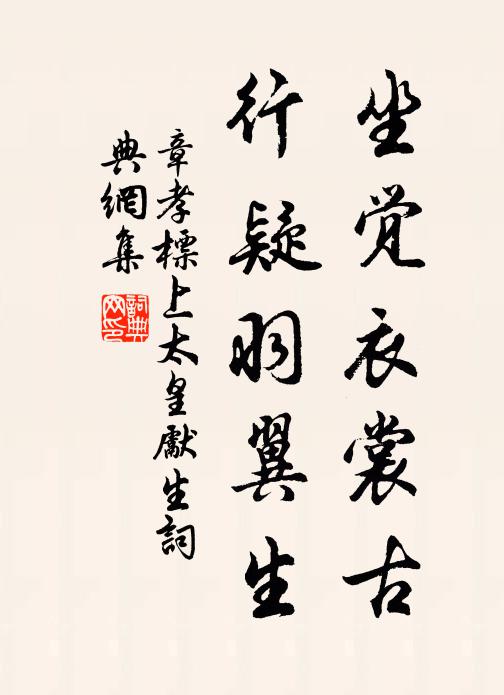 坐觉衣裳古
行疑羽翼生
章孝標上太皇獻生詞
典網集
詞典網印